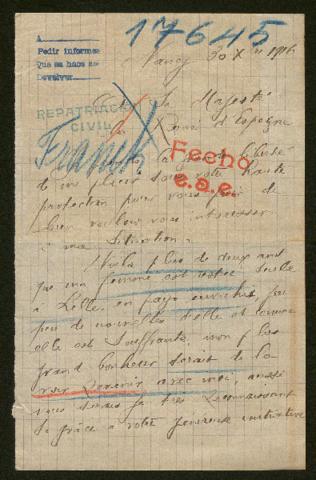 17645
A
Pedir informes
Que se haga se
Devolver
Nancy 30 X 1916
REPATRIACION
CIVIL
Sa Majesté
la Reine d'Espagne
Franck
Fecho
e.a.e.
la liberté
de votre haute
protection pour vous prier de
bien vouloir vous intéresser
à ma situation.
Voilà plus de deux ans
que ma femme est restée seule
à Lille, en pays envahis j'ai
peu de nouvelles d'elle et comme
elle est souffrante, mon plus
grand bonheur serait de la
voir revenir avec moi, aussi
vous serais-je très reconnaissant
si grâce à votre généreuse